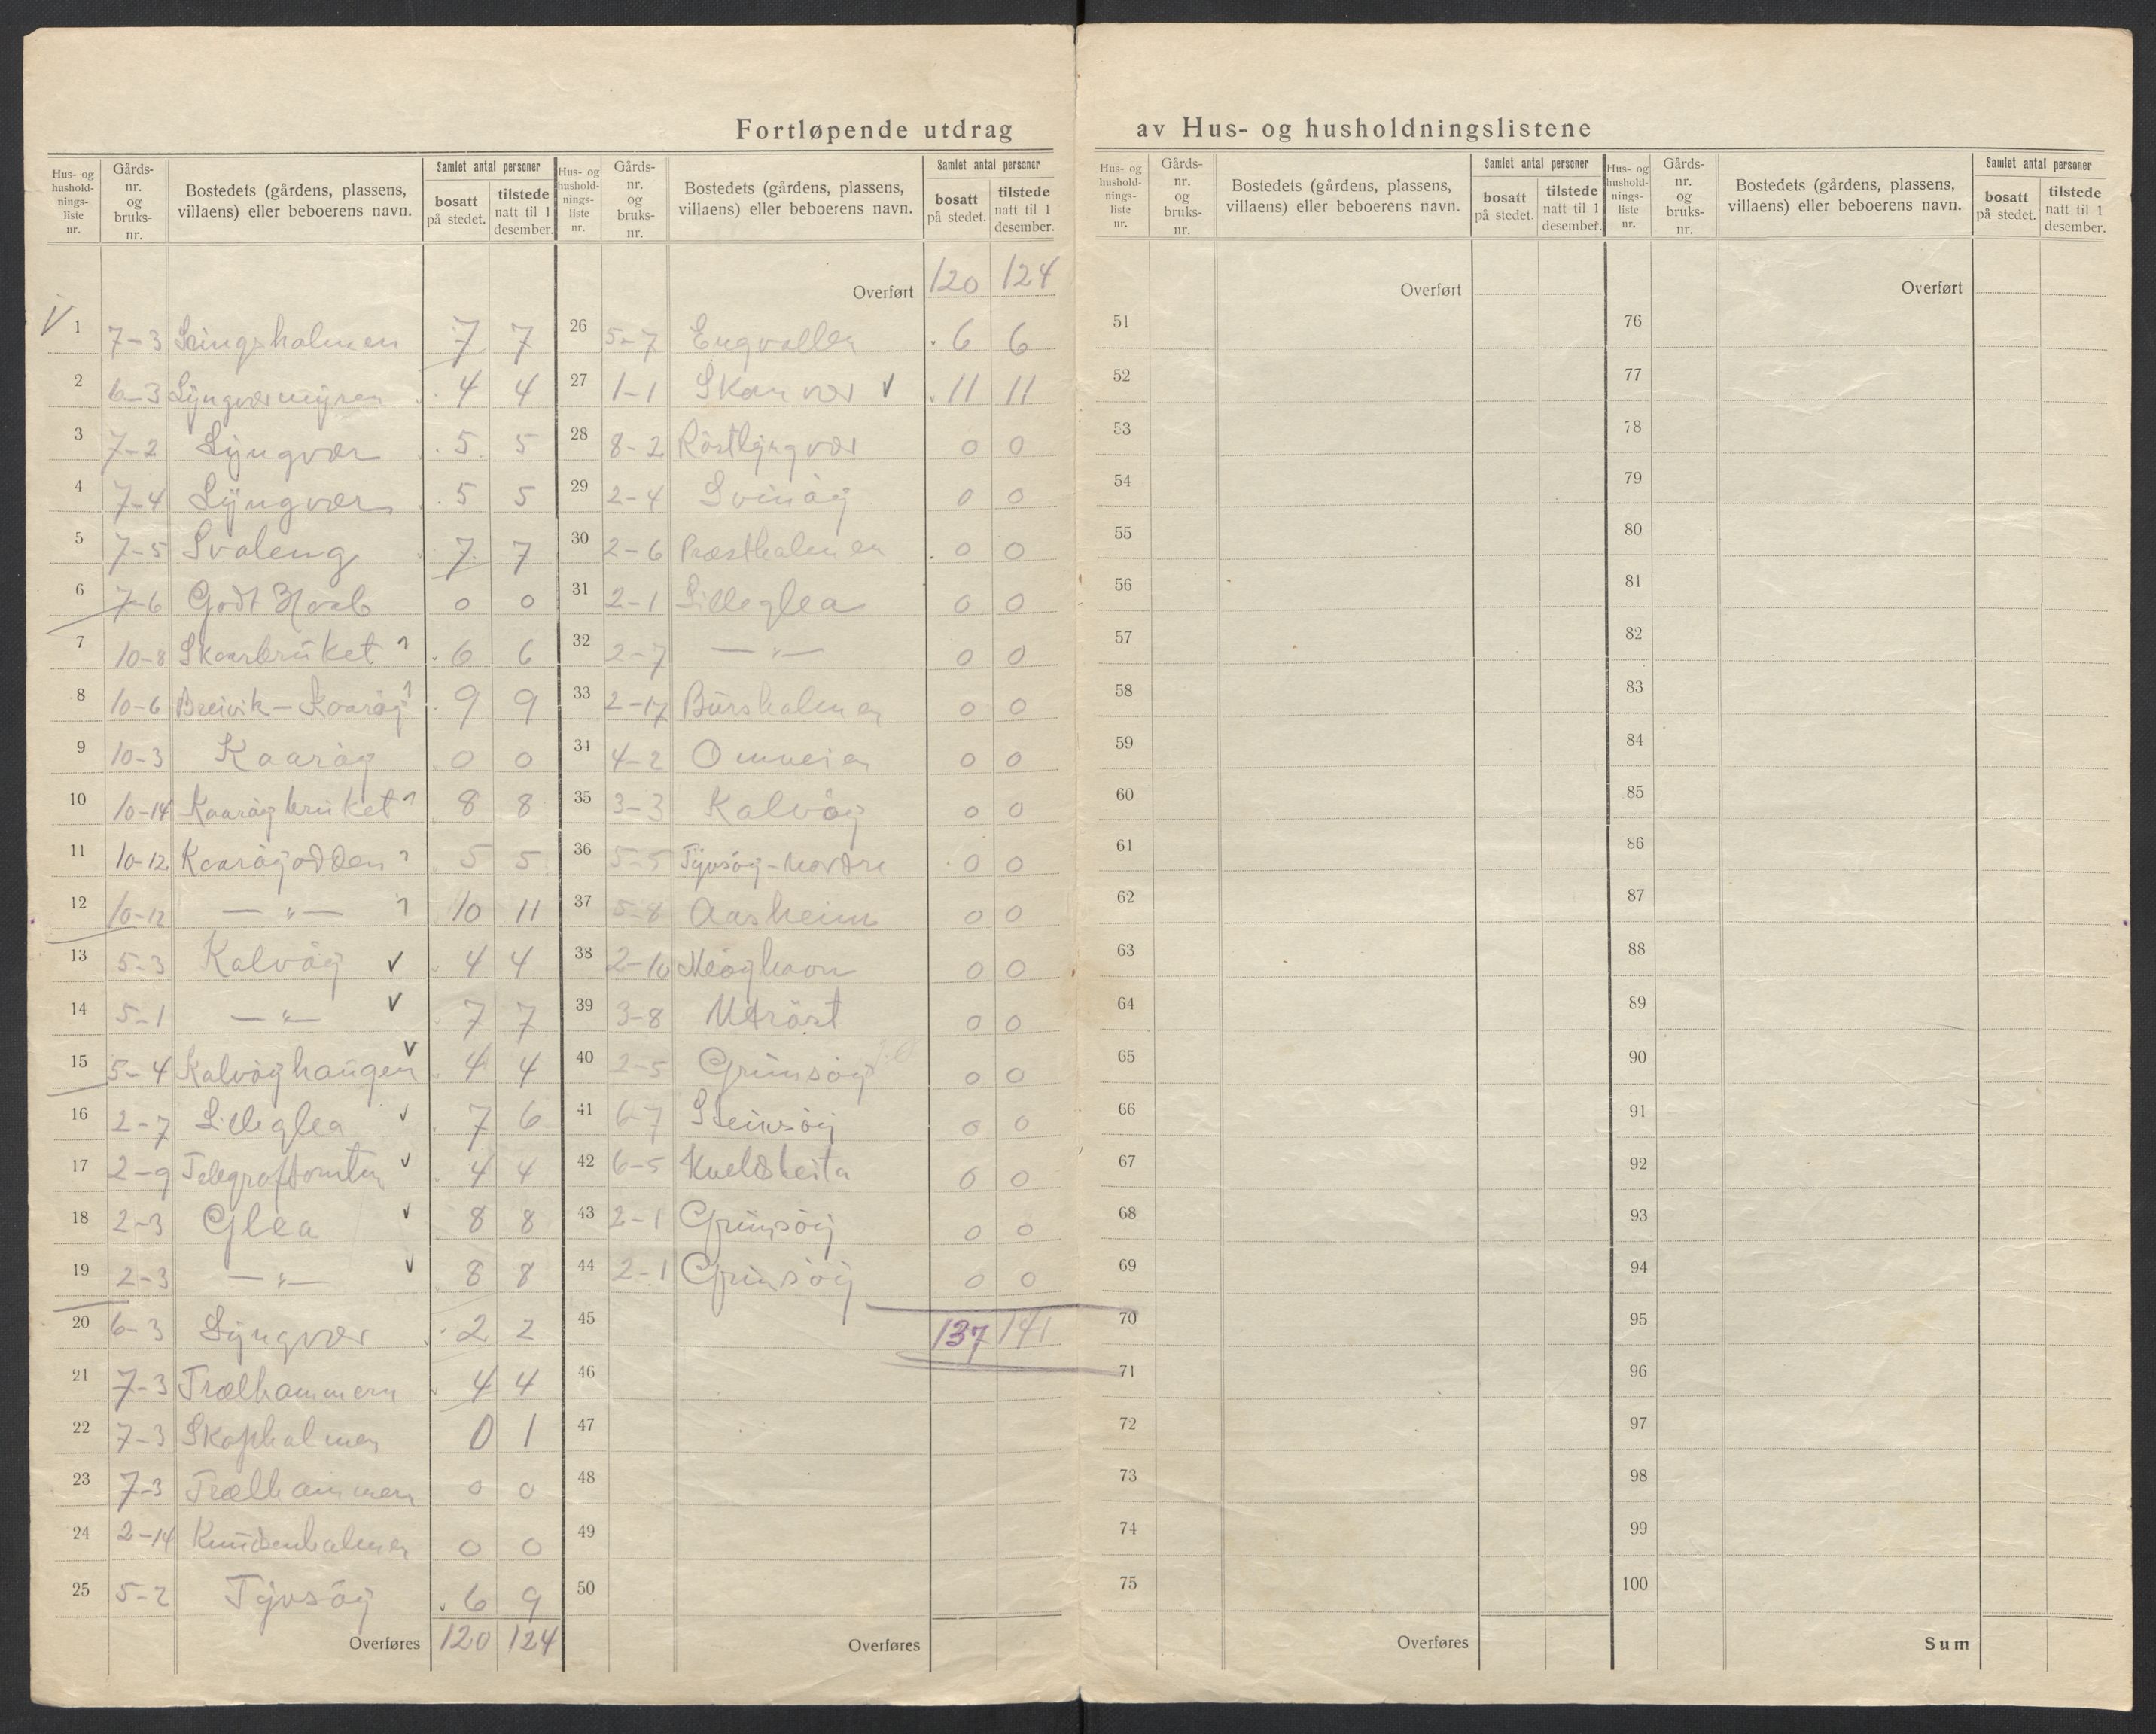 Fortløpende utdrag av Hus- og husholdningslistene
Hus- og hushold-nings-liste nr. | Gårds-nr. og bruks-nr. | Bostedets (gårdens, plassens, villaens) eller beboerens navn. | Samlet antal personer | bosatt på stedet. | tilstede natt til 1 desember.
1 7-3 holmen 7 7
2 6-3 Lyngværmyren 4 4
3 7-2 Lyngvær 5 5
4 7-4 Lyngvær 5 5
5 7-5 Svaleng 7 7
6 7-6 Godt Haab 0 0
7 10-8 6 6
8 10-6 Breivik - 9 9
9 10-3 Kaarøy 0 0
10 10-14 Kaarøybruket 8 8
11 10-12 Kaarøyodden 5 5
12 10-12 —„— 10 11
13 5-3 Kalvøy v 4 4
14 5-1 —„— v 7 7
15 5-4 Kalvøyhaugen v 4 4
16 2-7 Lilleglea v 7 6
17 2-9 Telegraftomten v 4 4
18 2-3 Glea v 8 8
19 2-3 —„— v 8 8
20 6-3 Lyngvær 2 2
21 7-3 Trælhammern 4 4
22 7-3 0 1
23 7-3 Trælhammern 0 0
24 2-14 Knudsenholmen 0 0
25 5-2 Tyvsøy 6 9
Overføres 120 124
Hus- og hushold-nings-liste nr. | Gårds-nr. og bruks-nr. | Bostedets (gårdens, plassens, villaens) eller beboerens navn. | Samlet antal personer | bosatt på stedet. | tilstede natt til 1 desember.
Overført 120 124
26 5-7 Engvollen 6 6
27 1-1 Skomvær v 11 11
28 8-2 Röstlyngvær 0 0
29 2-4 Svinøy 0 0
30 2-6 Præstholmen 0 0
31 2-1 Lilleglea 0 0
32 2-7 —„— 0 0
33 2-17 Bursholmen 0 0
34 4-2 0 0
35 3-3 Kalvøy 0 0
36 5-5 Tyvsøy-Nordre 0 0
37 5-8 Aasheim 0 0
38 2-10 0 0
39 3-8 Utröst 0 0
40 2-5 Grimsøy 0 0
41 6-7 Steinsøy 0 0
42 6-5 0 0
43 2-1 Grimsøy 0 0
44 2-1 Grimsøy 0 0
45 137 141
46
47
48
49
50
Overføres
Hus- og hushold-nings-liste nr. | Gårds-nr. og bruks-nr. | Bostedets (gårdens, plassens, villaens) eller beboerens navn. | Samlet antal personer | bosatt på stedet. | tilstede natt til 1 desember.
Overført
51
52
53
54
55
56
57
58
59
60
61
62
63
64
65
66
67
68
69
70
71
72
73
74
75
Overføres
Hus- og hushold-nings-liste nr. | Gårds-nr. og bruks-nr. | Bostedets (gårdens, plassens, villaens) eller beboerens navn. | Samlet antal personer | bosatt på stedet. | tilstede natt til 1 desember.
Overført
76
77
78
79
80
81
82
83
84
85
86
87
88
89
90
91
92
93
94
95
96
97
98
99
100
Sum